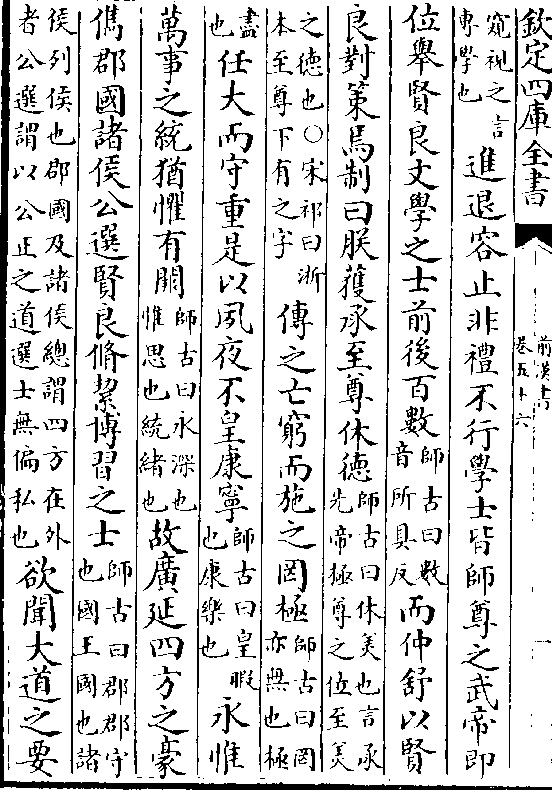 欽定四庫全書 前漢書 卷五十六
窺視之言專學也進退容止非禮不行學士皆師尊之武帝即
位舉賢良文學之士前後百數師古曰數音所具反而仲舒以賢
良對策焉制曰朕獲承至尊休德師古曰休美也言承先帝極尊之位至美
之德也○宋祁曰浙本至尊下有之字傳之亡窮而施之罔極師古曰罔亦無也極
盡也任大而守重是以夙夜不皇康寧師古曰皇暇也康樂也永惟
萬事之統猶懼有闕師古曰永深也惟思也統緒也故廣延四方之豪
儁郡國諸侯公選賢良脩絜博習之士師古曰郡郡守也國王國也諸
侯列侯也郡國及諸侯總謂四方在外者公選謂以公正之道選士無偏私也欲聞大道之要